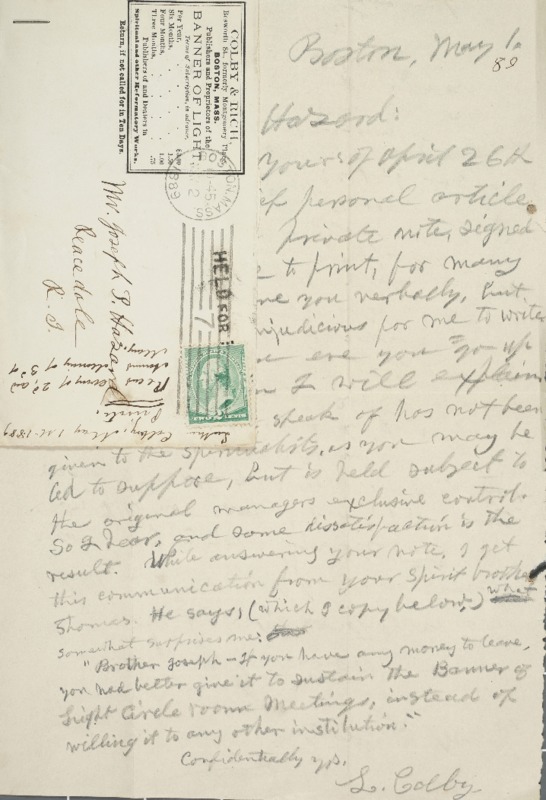 COLBY & RICH
Bosworth St., formerly Montgomery Place,
BOSTON, MASS.
Publishers and Proprietors of the
BANNER OF LIGHT
Terms of Subscription, in advance.
Per Year,
Six Months,
Four Months, 1.00
Three Months, .75
Publishers of and Dealers in
Spiritual and other Reformatory Works.
Return, if not called for in Ten Days.
1889
HELD FOR
Mr. Joseph P. Hazard
Peacedale
R. I.
Colby, May 1st 1889
Boston, May 1.
89
Hazard:
Yours of April 26th
personal article
private note, signed
to print, for many
you verbally, but
injudicious for me to write
ere you go up
I will explain
speak of has not been
given to the Spiritualists, as you may be
led to suppose, but is held subject to
the original managers exclusive control.
So I hear, and some dissatisfaction is the
result. While answering your note, I get
this communication from your spirit brother
Thomas. He says, (which I copy below,) what
somewhat surprises me:
"Brother Joseph – If you have any money to leave,
you had better give it to sustain the Banner of
Light Circle room Meetings, instead of
willing it to any other institution."
Confidentially yrs.
L. Colby